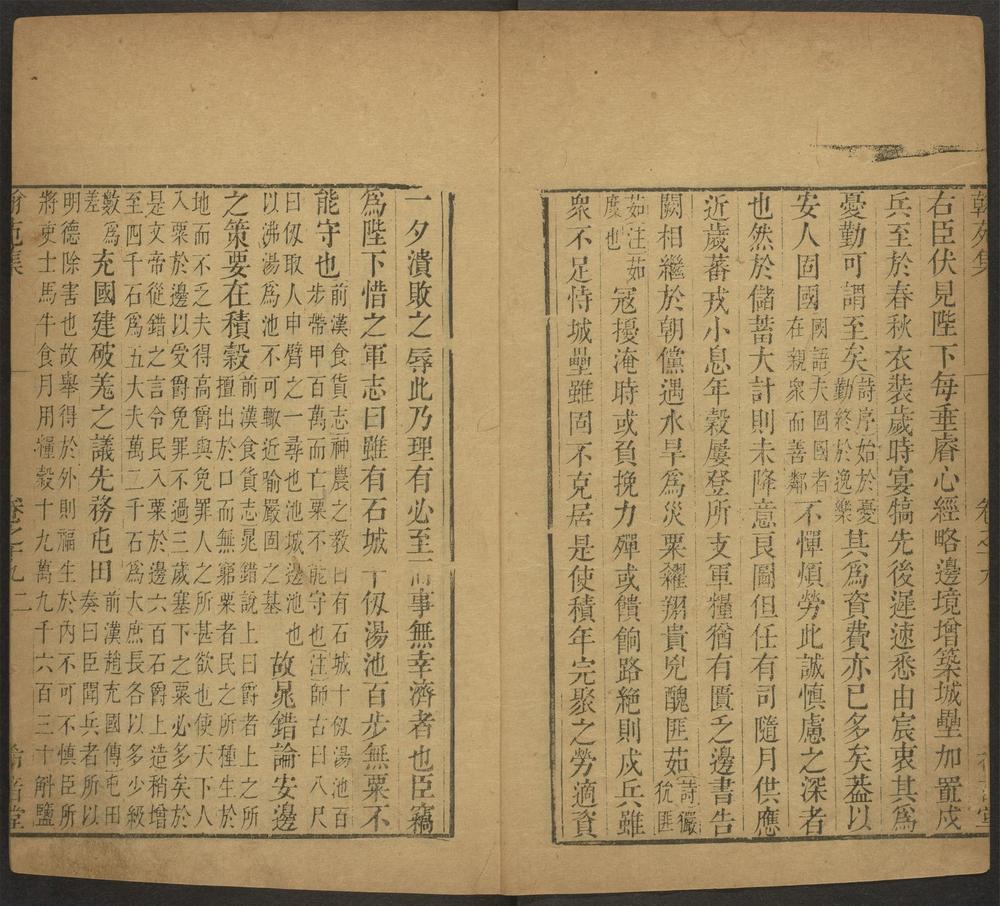 右臣伏見陛下每垂睿心經略邊境增築城壘加置戍
兵至於春秋衣裝歲時宴犒先後遲速悉由宸衷其爲
憂勤可謂至矣詩序始於憂勤終於逸樂其爲資費亦已多矣葢以
安人固國國語夫固國者在親衆而善鄰不憚煩勞此誠慎慮之深者
也然於儲蓄大計則未降意良圖但任有司隨月供應
近歲蕃戎小息年穀屢登所支軍糧猶有匱乏邊書告
闕相繼於朝儻遇水旱爲災粟糴翔貴兇醜匪茹詩玁狁匪
茹注茹度也寇擾淹時或負挽力殫或饋餉路絶則戍兵雖
衆不足恃城壘雖固不克居是使積年完聚之勞適資
一夕潰敗之辱此乃理有必至而事無幸濟者也臣竊
爲陛下惜之軍志曰雖有石城十仭湯池百步無粟不
能守也前漢食貨志神農之教曰有石城十仭湯池百步帶甲百萬而亡粟不能守也注師古曰八尺
曰仭取人申臂之一尋也池城邊池也以沸湯爲池不可輙近喻嚴固之基故晁錯論安邊
之策要在積穀前漢食貨志晁錯說上曰爵者上之所擅出於口而無窮粟者民之所種生於
地而不乏夫得高爵與免罪人之所甚欲也使天下人入粟於邊以受爵免罪不過三歲塞下之粟必多矣於
是文帝從錯之言令民入粟於邊六百石爵上造稍增至四千石爲五大夫萬二千石爲大庶長各以多少級
數爲差充國建破羗之議先務屯田前漢趙充國傳屯田奏曰臣聞兵者所以
明德除害也故舉得於外則福生於內不可不慎臣所將吏士馬牛食月用糧穀十九萬九千六百三十斛鹽
卷之十九 二